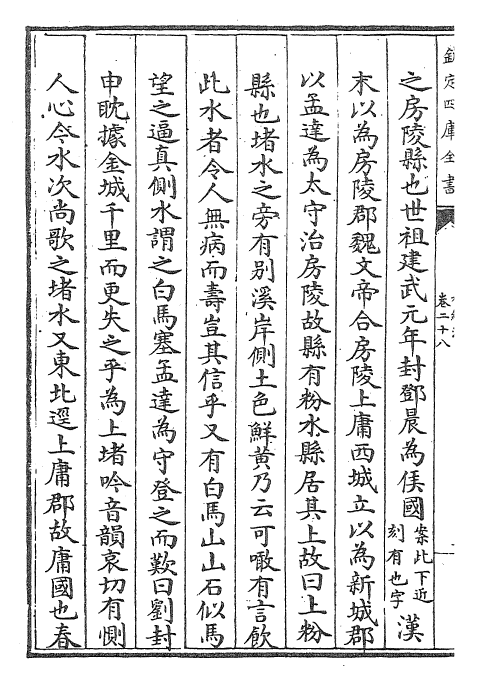 欽定四庫全書
卷二十八
之房陵縣也世祖建武元年封鄧晨為侯國案此下近刻有也字漢
末以為房陵郡魏文帝合房陵上庸西城立以為新城郡
以孟達為太守治房陵故縣有粉水縣居其上故曰上粉
縣也堵水之旁有别溪岸側土色鮮黄乃云可噉有言飲
此水者令人無病而壽豈其信乎又有白馬山山石似馬
望之逼真側水謂之白馬塞孟達為守登之而歎曰劉封
申耽據金城千里而更失之乎為上堵吟音韻哀切有惻
人心今水次尚歌之堵水又東北逕上庸郡故庸國也春